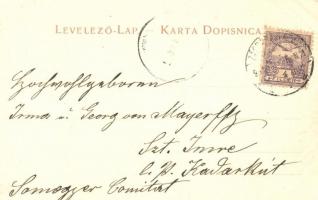 LEVELEZŐ-LAP KARTA DOPISNICA
Hochwohlgeboren
Irma u. Georg von Mayerffy
Szt. Imre
l. P. Kadarkút
Somogyer Comitat